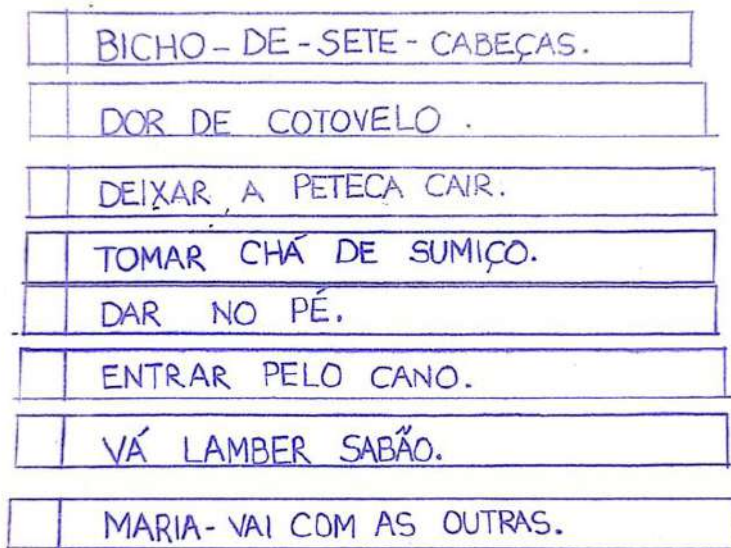 BICHO-DE-SETE-CABEÇAS.
DOR DE COTOVELO.
DEIXAR A PETECA CAIR.
TOMAR CHÁ DE SUMIÇO.
DAR NO PÉ.
ENTRAR PELO CANO.
VÁ LAMBER SABÃO.
MARIA-VAI COM AS OUTRAS.